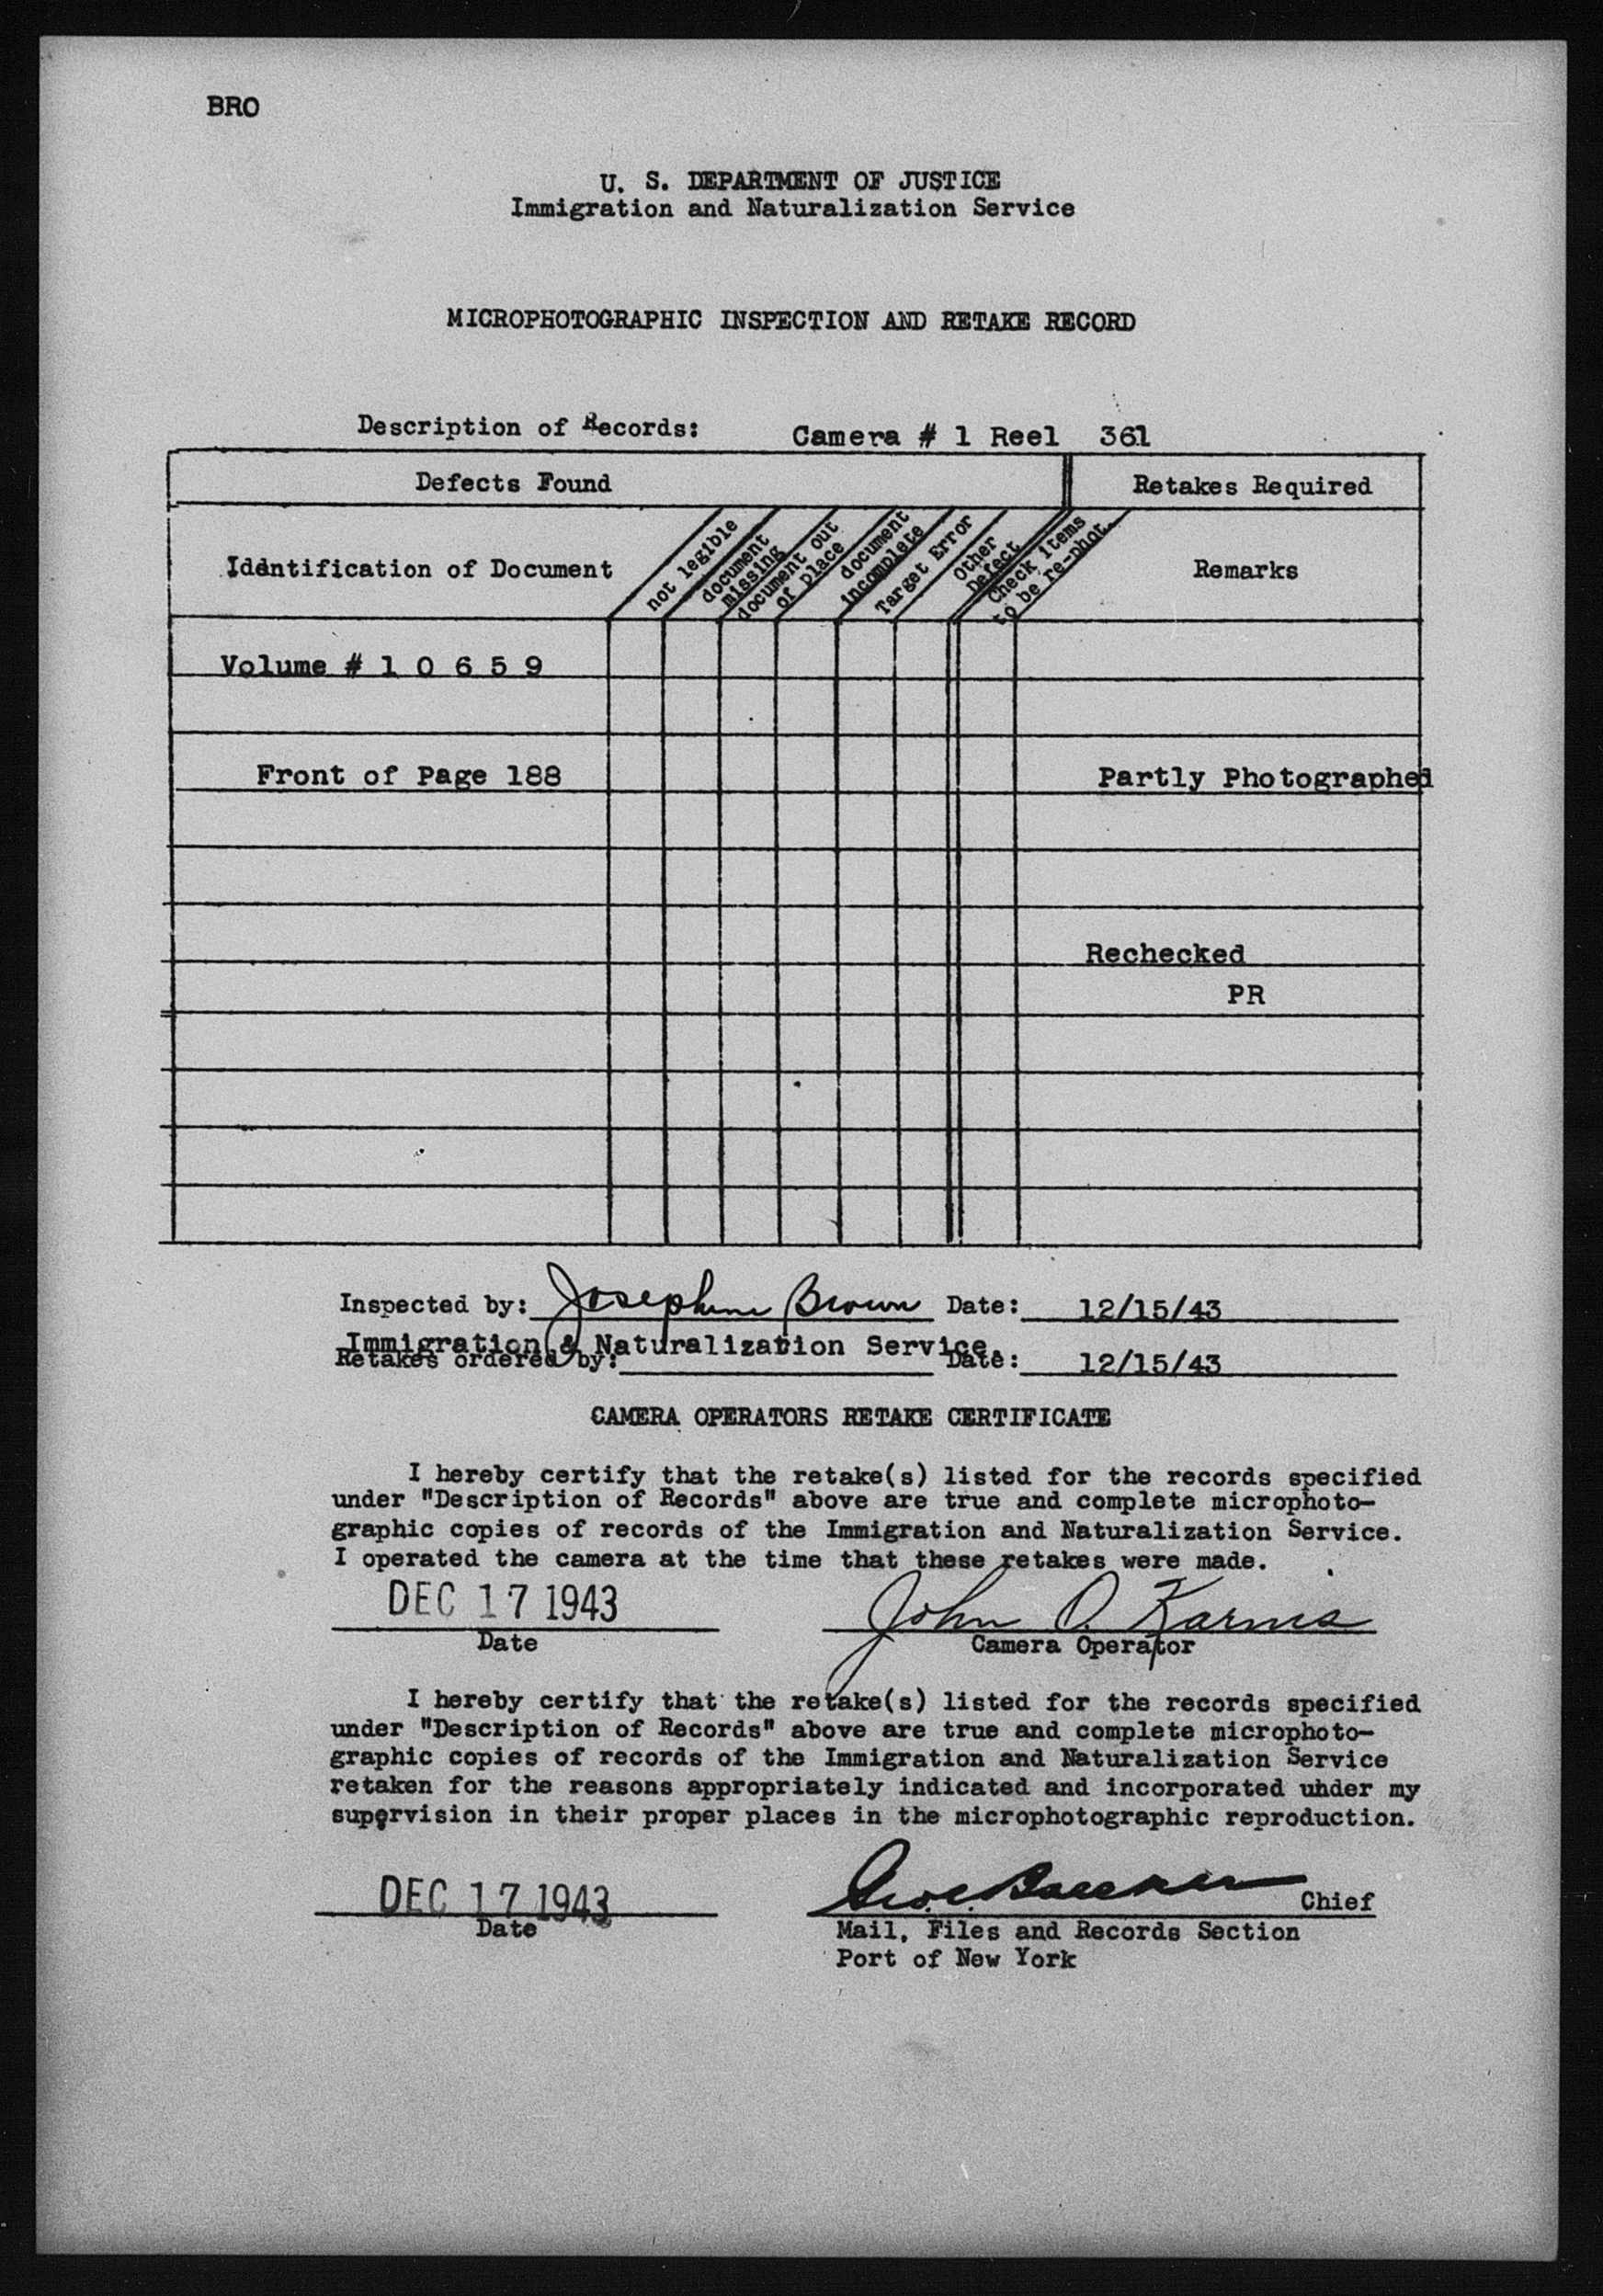 BRO
U. S. DEPARTMENT OF JUSTICE
Immigration and Naturalization Service
MICROPHOTOGRAPHIC INSPECTION AND RETAKE RECORD
Description of Records: Camera # 1 Reel 361
Defects Found
Retakes Required
Identification of Document
not legible
document
missing
document out
of place
document
incomplete
Target Error
Other
Defect
Check items
to be re-phot.
Remarks
Volume # 1 0 6 5 9
Front of Page 188 Partly Photographed
Rechecked
PR
Inspected by: Josephine Brown Date: 12/15/43
Immigration & Naturalization Service.
Retakes ordered by: Date: 12/15/43
CAMERA OPERATORS RETAKE CERTIFICATE
I hereby certify that the retake(s) listed for the records specified
under "Description of Records" above are true and complete microphoto-
graphic copies of records of the Immigration and Naturalization Service.
I operated the camera at the time that these retakes were made.
DEC 17 1943 John O.
Date Camera Operator
I hereby certify that the retake(s) listed for the records specified
under "Description of Records" above are true and complete microphoto-
graphic copies of records of the Immigration and Naturalization Service
retaken for the reasons appropriately indicated and incorporated under my
supervision in their proper places in the microphotographic reproduction.
DEC 17 1943 Chief
Date Mail, Files and Records Section
Port of New York